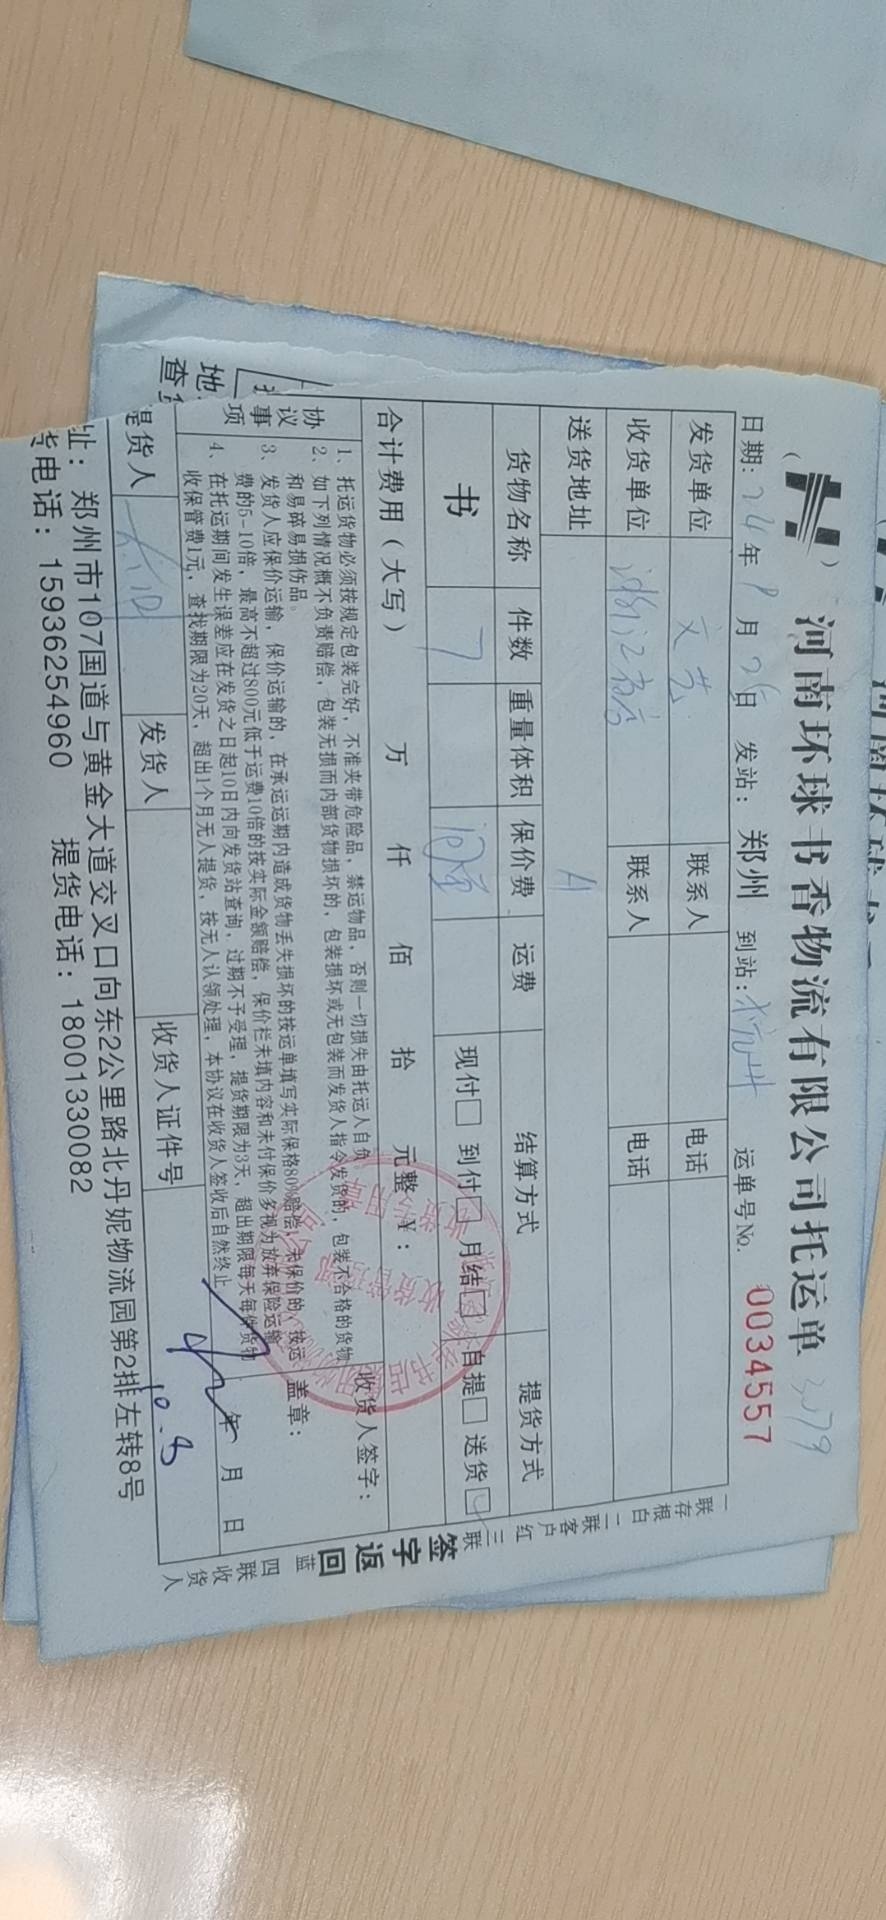 河南环球书香物流有限公司托运单
日期: 24年 月 日 发站: 郑州 到站: 杭州 运单号No. 0034557
发货单位 文艺 联系人 电话
收货单位 浙江 联系人 电话
送货地址
货物名称 件数 重量体积 保价费 运费 结算方式 提货方式
书 7 现付□ 到付□ 月结□ 自提□ 送货□
合计费用(大写) 万 仟 佰 拾 元整 ¥:
协议事项
1、托运货物必须按规定包装完好,不准夹带危险品,禁运物品,否则一切损失由托运人自负
2、如下列情况概不负责赔偿,包装无损而内部货物损坏的,包装损坏或无包装而发货人指令发货的,包装不合格的货物
和易碎易损伤品。
3、发货人应保价运输,保价运输的,在承运运期内造成货物丢失损坏的按运单填写实际保格80%赔偿,未保价的,按运
费的5-10倍,最高不超过800元低于运费10倍的按实际金额赔偿,保价栏未填内容和未付保价多视为放弃保险运输
4、在托运期间发生误差应在发货之日起10日内向发货站查询,过期不予受理,提货期限为3天,超出期限每天每件货物
收保管费1元,查找期限为20天,超出1个月无人提货,按无人认领处理,本协议在收货人签收后自然终止
收货人签字:
盖章:
年 月 日
提货人 发货人 收货人证件号 10.8
址: 郑州市107国道与黄金大道交叉口向东2公里路北丹妮物流园第2排左转8号
电话: 15936254960 提货电话: 18001330082
一联存根白 二联客户红 三联
签字返回
蓝 四联收货人
收货管理部
收货专用章
地
查